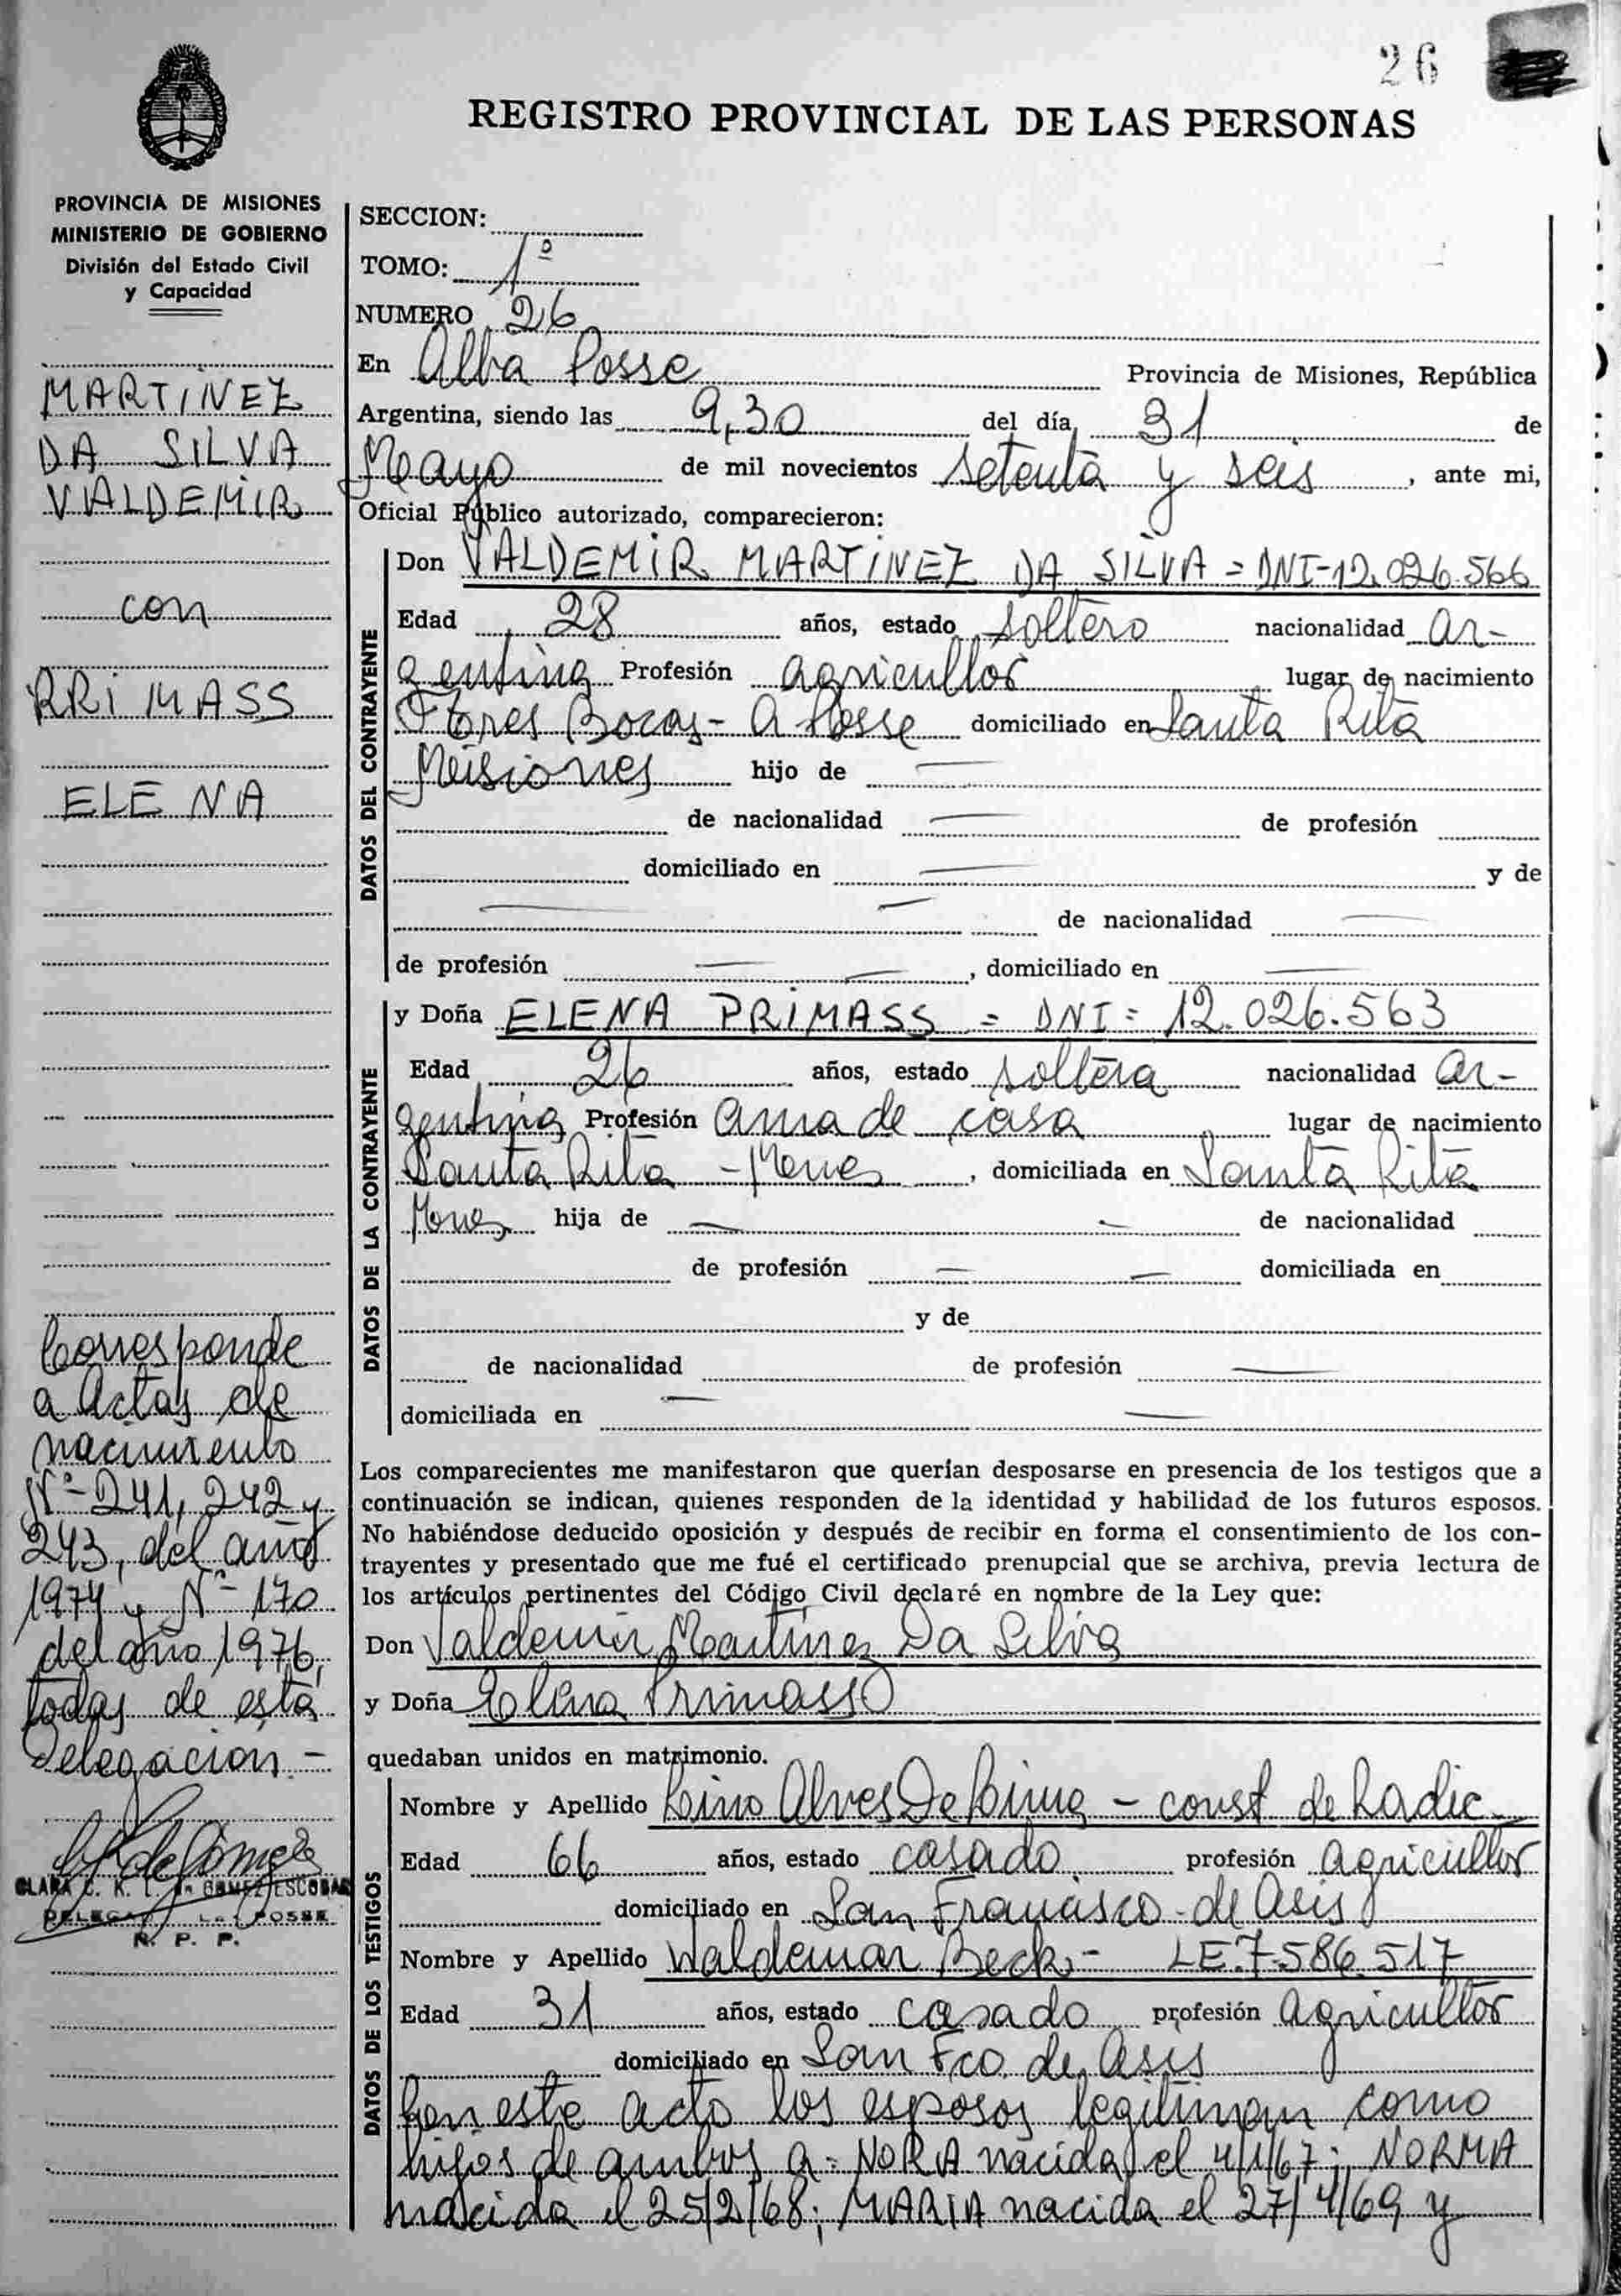 26
REGISTRO PROVINCIAL DE LAS PERSONAS
PROVINCIA DE MISIONES
MINISTERIO DE GOBIERNO
División del Estado Civil
y Capacidad
MARTINEZ
DA SILVA
VALDEMIR
con
PRIMASS
ELENA
Corresponde
a Actas de
nacimiento
Nº 241, 242 y
243, del año
1974 y Nº 170
del año 1976,
todas de esta
Delegación.-
CLARA C. K. L. de GOMEZ ESCOBAR
POSSE
R. P. P.
SECCION:
TOMO: 1º
NUMERO 26
En Alba Posse Provincia de Misiones, República
Argentina, siendo las 9,30 del día 31 de
Mayo de mil novecientos setenta y seis, ante mi,
Oficial Público autorizado, comparecieron:
DATOS DEL CONTRAYENTE
Don VALDEMIR MARTINEZ DA SILVA = DNI-12.026.566
Edad 28 años, estado soltero nacionalidad ar-
gentina Profesión agricultor lugar de nacimiento
Bocas - A Posse domiciliado en Santa Rita
Misiones hijo de —
de nacionalidad — de profesión
domiciliado en — y de
— — de nacionalidad —
de profesión — —, domiciliado en —
DATOS DE LA CONTRAYENTE
y Doña ELENA PRIMASS = DNI = 12.026.563
Edad 26 años, estado soltera nacionalidad ar-
gentina Profesión ama de casa lugar de nacimiento
Santa Rita - Mnes, domiciliada en Santa Rita
Mnes hija de — — de nacionalidad
de profesión — — domiciliada en
y de
de nacionalidad de profesión —
domiciliada en — —
Los comparecientes me manifestaron que querían desposarse en presencia de los testigos que a
continuación se indican, quienes responden de la identidad y habilidad de los futuros esposos.
No habiéndose deducido oposición y después de recibir en forma el consentimiento de los con-
trayentes y presentado que me fué el certificado prenupcial que se archiva, previa lectura de
los artículos pertinentes del Código Civil declaré en nombre de la Ley que:
Don Valdemir Martinez Da Silva
y Doña Elena Primass
quedaban unidos en matrimonio.
DATOS DE LOS TESTIGOS
Nombre y Apellido Lino Alves De Lima - const de Radic.
Edad 66 años, estado casado profesión agricultor
domiciliado en San Francisco de Asis
Nombre y Apellido Waldemar Beck - LE.7.586.517
Edad 31 años, estado casado profesión agricultor
domiciliado en San Fco. de Asis
En este acto los esposos legitiman como
hijos de ambos a: NORA nacida el 4/1/67; NORMA
nacida el 25/2/68; MARIA nacida el 27/4/69 y